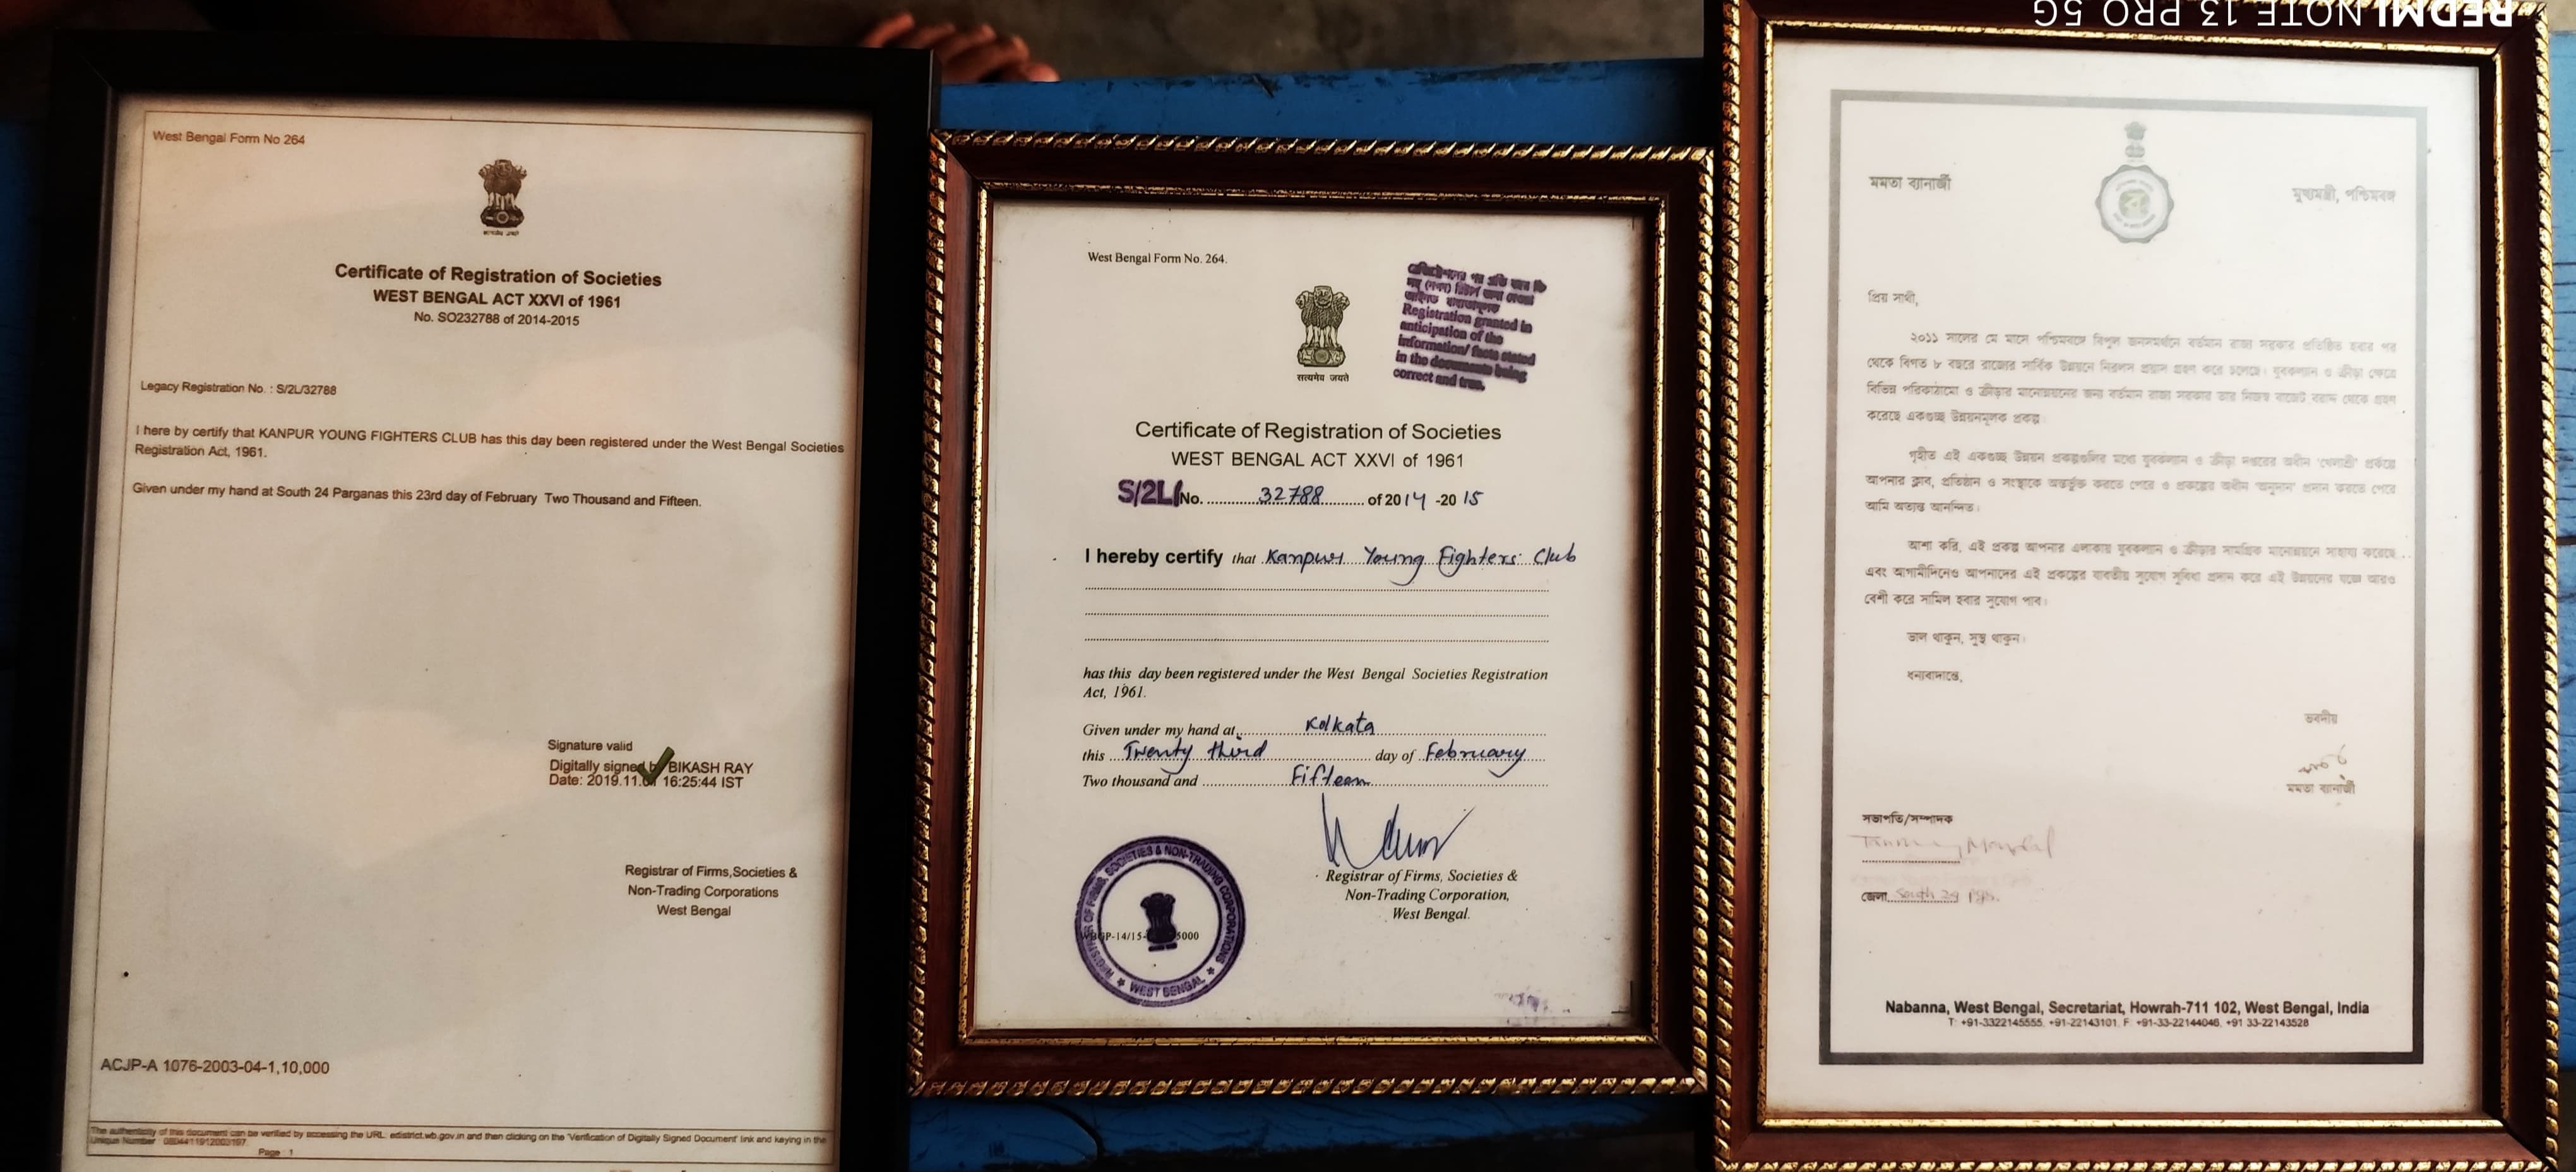 West Bengal Form No 264
Certificate of Registration of Societies
WEST BENGAL ACT XXVI of 1961
No. SO232788 of 2014-2015
Legacy Registration No. : S/2L/32788
I here by certify that KANPUR YOUNG FIGHTERS CLUB has this day been registered under the West Bengal Societies
Registration Act, 1961.
Given under my hand at South 24 Parganas this 23rd day of February Two Thousand and Fifteen.
Signature valid
Digitally signed by BIKASH RAY
Date: 2019.11. 16:25:44 IST
Registrar of Firms,Societies &
Non-Trading Corporations
West Bengal
ACJP-A 1076-2003-04-1,10,000
The authenticity of this document can be verified by accessing the URL: edistrict.wb.gov.in and then clicking on the 'Verification of Digitally Signed Document' link and keying in the
Unique Number :
Page : 1
West Bengal Form No. 264.
Registration granted in
anticipation of the
information/ facts stated
in the documents being
correct and true.
सत्यमेव जयते
Certificate of Registration of Societies
WEST BENGAL ACT XXVI of 1961
S/2L/No. 32788 of 2014 -2015
I hereby certify that Kanpur Young Fighters Club
has this day been registered under the West Bengal Societies Registration
Act, 1961.
Given under my hand at Kolkata
this Twenty third day of February
Two thousand and Fifteen
Registrar of Firms, Societies &
Non-Trading Corporation,
West Bengal.
REGISTRAR OF FIRMS, SOCIETIES & NON-TRADING CORPORATIONS
WEST BENGAL
5000
REDMI NOTE 13 PRO 5G
মমতা ব্যানার্জী
মুখ্যমন্ত্রী, পশ্চিমবঙ্গ
প্রিয় সাথী,
২০১১ সালের মে মাসে পশ্চিমবঙ্গে বিপুল জনসমর্থনে বর্তমান রাজ্য সরকার প্রতিষ্ঠিত হবার পর
থেকে বিগত ৮ বছরে রাজ্যের সার্বিক উন্নয়নে নিরলস প্রয়াস গ্রহণ করে চলেছে। যুবকল্যান ও ক্রীড়া ক্ষেত্রে
বিভিন্ন পরিকাঠামো ও ক্রীড়ার মানোন্নয়নের জন্য বর্তমান রাজ্য সরকার তার নিজস্ব বাজেট বরাদ্দ থেকে গ্রহণ
করেছে একগুচ্ছ উন্নয়নমূলক প্রকল্প।
গৃহীত এই একগুচ্ছ উন্নয়ন প্রকল্পগুলির মধ্যে যুবকল্যান ও ক্রীড়া দপ্তরের অধীন 'খেলাশ্রী' প্রকল্পে
আপনার ক্লাব, প্রতিষ্ঠান ও সংস্থাকে অন্তর্ভুক্ত করতে পেরে ও প্রকল্পের অধীন 'অনুদান' প্রদান করতে পেরে
আমি অত্যন্ত আনন্দিত।
আশা করি, এই প্রকল্প আপনার এলাকায় যুবকল্যান ও ক্রীড়ার সামগ্রিক মানোন্নয়নে সাহায্য করেছে
এবং আগামীদিনেও আপনাদের এই প্রকল্পের যাবতীয় সুযোগ সুবিধা প্রদান করে এই উন্নয়নের যজ্ঞে আরও
বেশী করে সামিল হবার সুযোগ পাব।
ভাল থাকুন, সুস্থ থাকুন।
ধন্যবাদান্তে,
ভবদীয়
মমতা ব্যানার্জী
সভাপতি/সম্পাদক
জেলা South 24 Pgs.
Nabanna, West Bengal, Secretariat, Howrah-711 102, West Bengal, India
T: +91-3322145555, +91-22143101, F: +91-33-22144046, +91 33-22143528